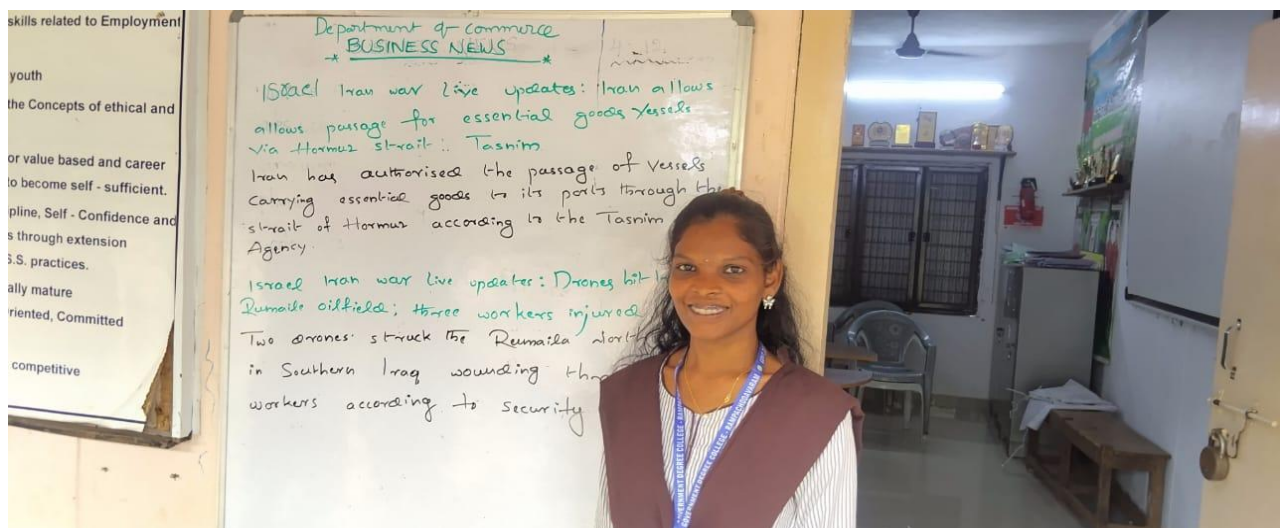 skills related to Employment
youth
the Concepts of ethical and
or value based and career
to become self - sufficient.
pline, Self - Confidence and
s through extension
S.S. practices.
ally mature
riented, Committed
competitive
Department of commerce
* BUSINESS NEWS *
Israel Iran war live updates: Iran allows
allows passage for essential goods vessels
via Hormuz strait: Tasnim
Iran has authorised the passage of vessels
carrying essential goods to its ports through the
strait of Hormuz according to the Tasnim
Agency.
Israel Iran war live updates: Drones hit
Rumaila oilfield; three workers injured
Two drones struck the Reumaila North
in Southern Iraq wounding
workers according to security
GOVERNMENT DEGREE COLLEGE - RAMPACHODAVARAM